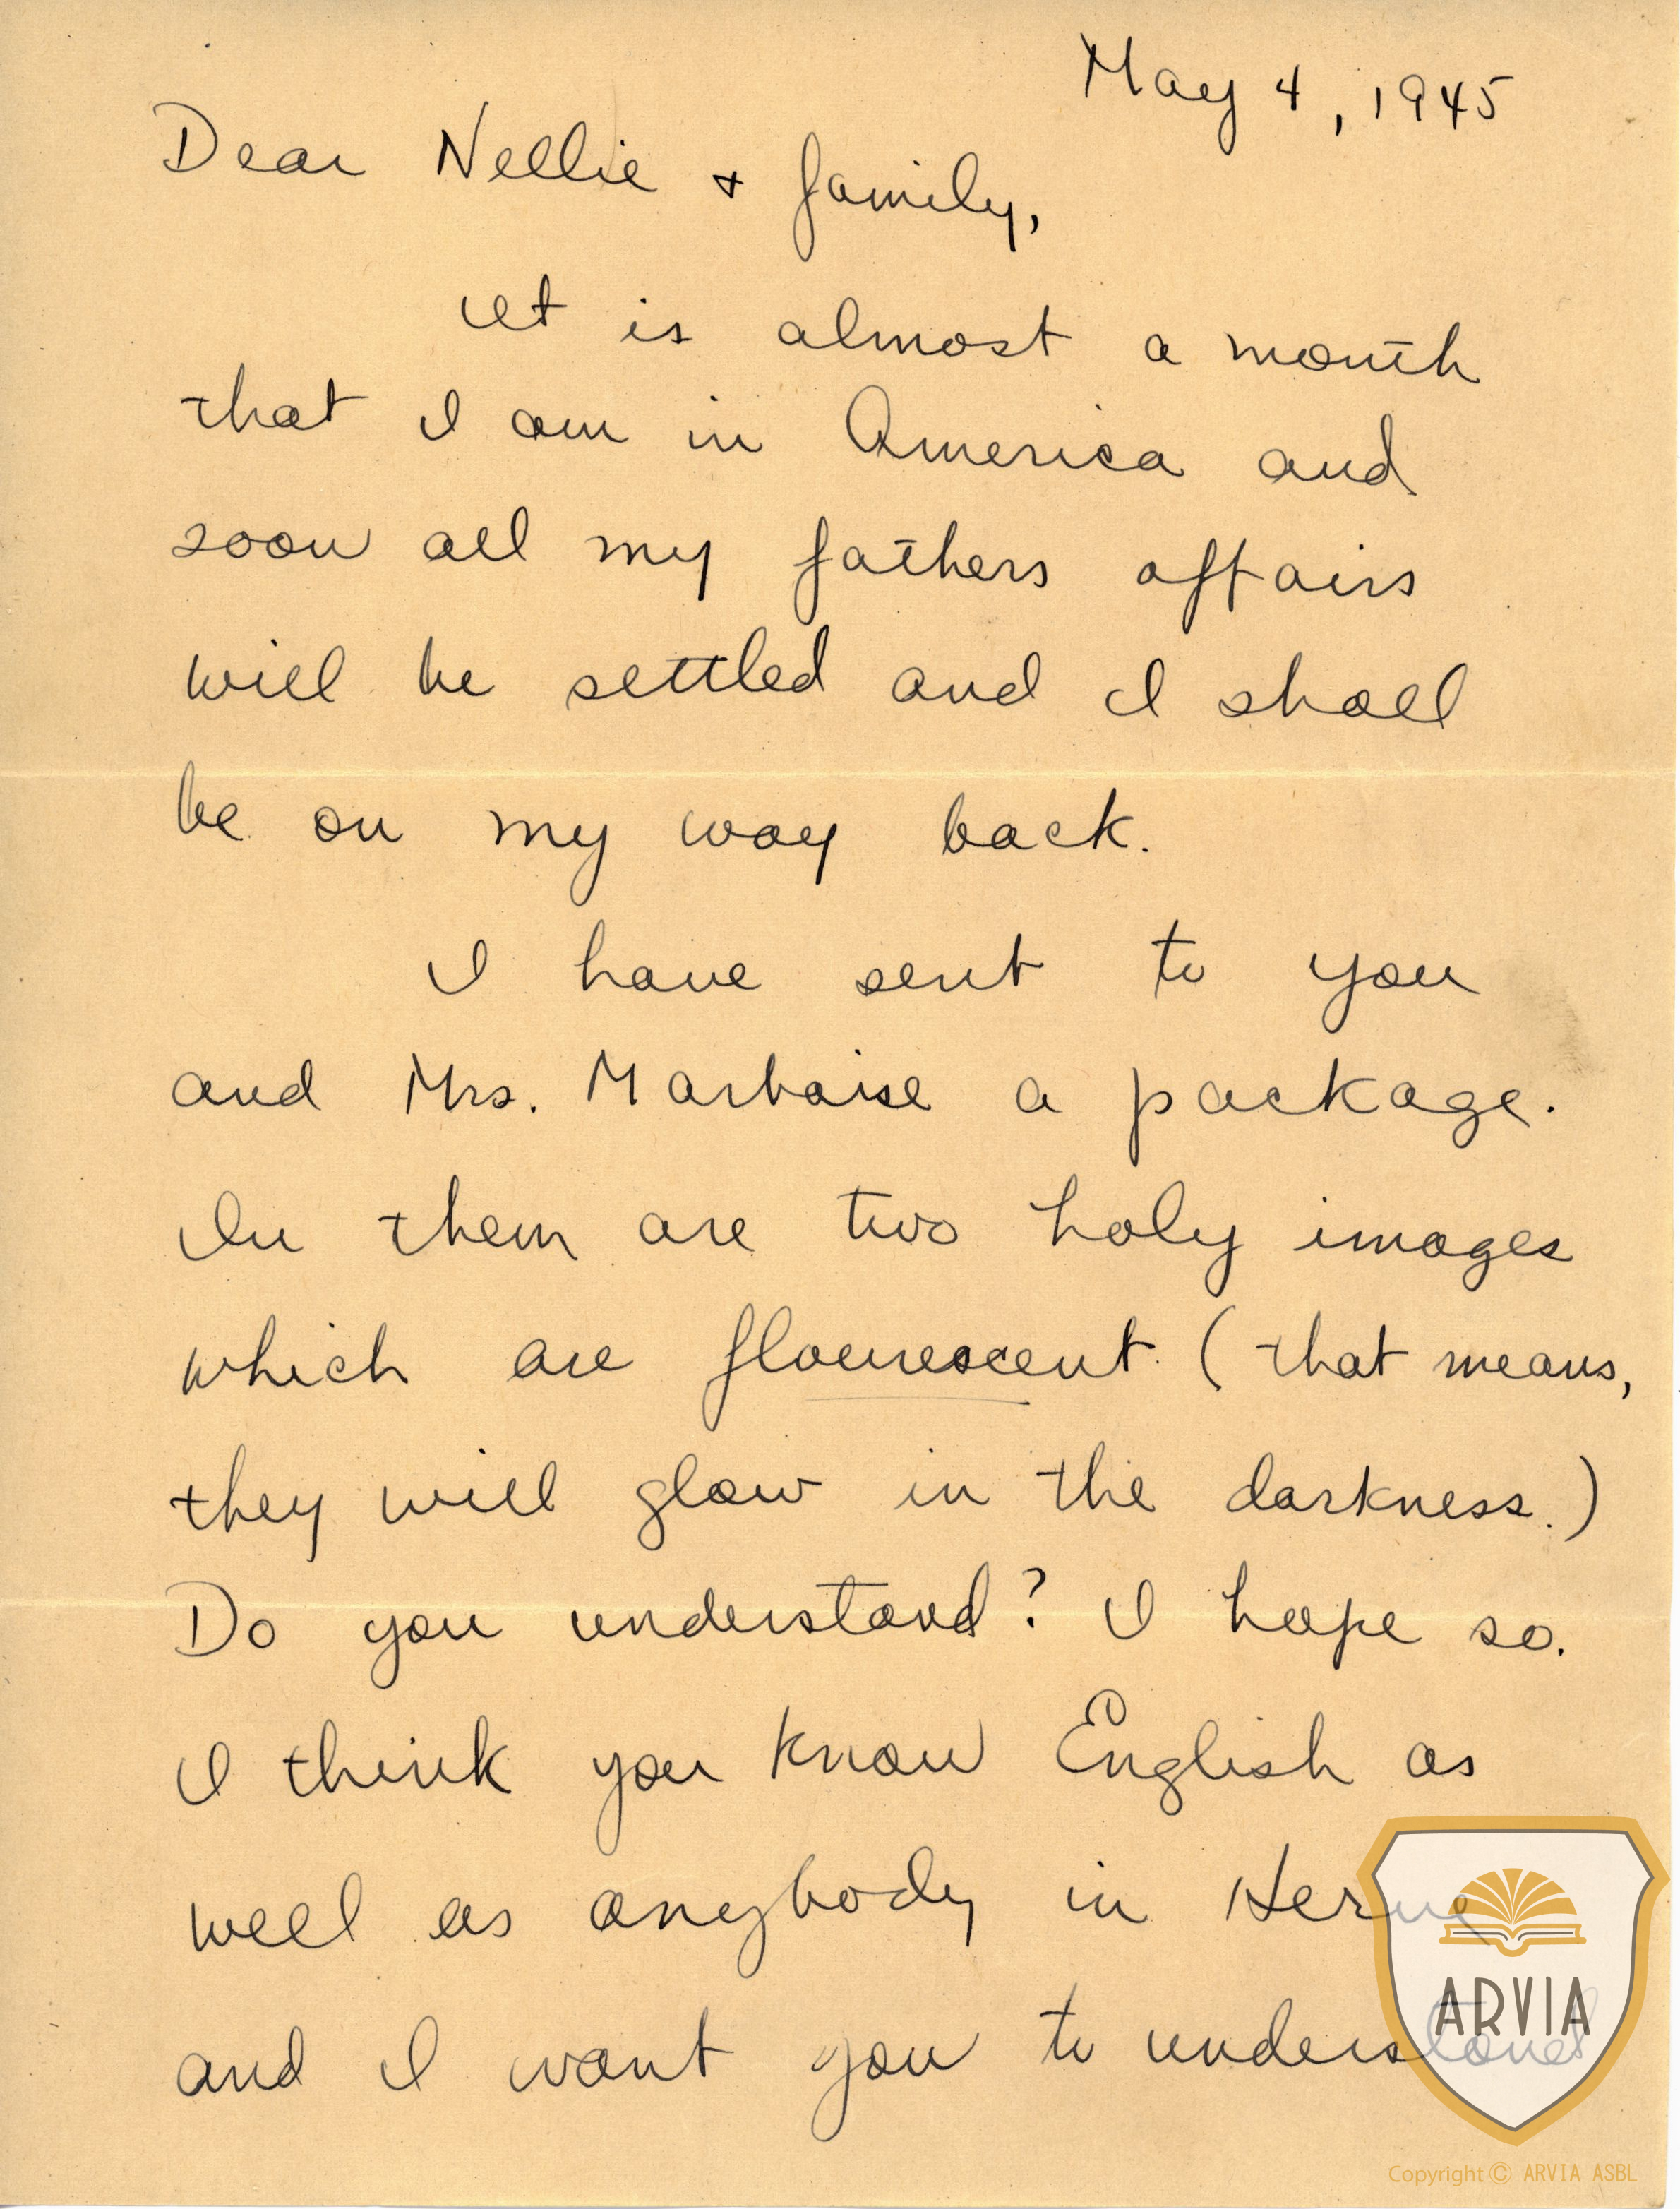 May 4, 1945
Dear Nellie + family,
It is almost a month
that I am in America and
soon all my fathers affairs
will be settled and I shall
be on my way back.
I have sent to you
and Mrs. Marbaise a package.
In them are two holy images
which are flouerescent (that means,
they will glow in the darkness.)
Do you understand? I hope so.
I think you know English as
well as anybody in Herve
and I want you to understand
ARVIA
Copyright © ARVIA ASBL